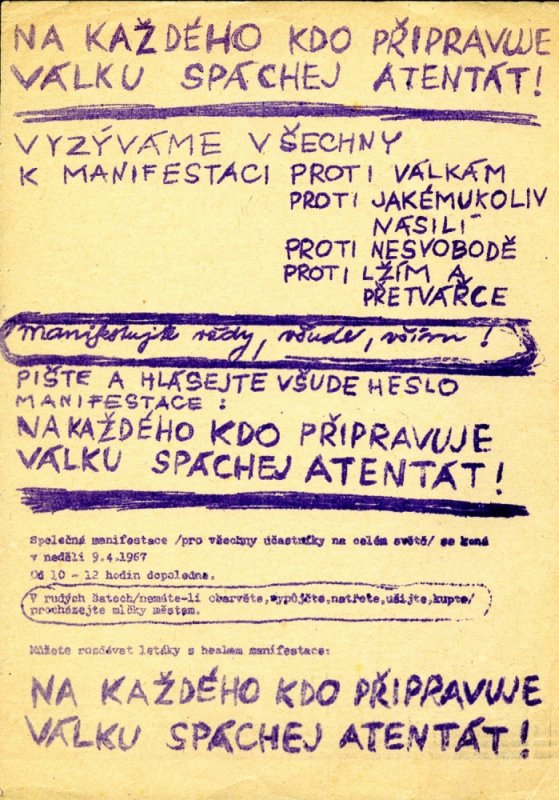 NA KAŽDÉHO KDO PŘIPRAVUJE
VÁLKU SPÁCHEJ ATENTÁT!
VYZÝVÁME VŠECHNY
K MANIFESTACI PROTI VÁLKÁM
PROTI JAKÉMUKOLIV
NÁSILÍ
PROTI NESVOBODĚ
PROTI LŽÍM A
PŘETVÁŘCE
manifestujte vždy, všude, vším!
PIŠTE A HLÁSEJTE VŠUDE HESLO
MANIFESTACE:
NA KAŽDÉHO KDO PŘIPRAVUJE
VÁLKU SPÁCHEJ ATENTÁT!
Společná manifestace /pro všechny účastníky na celém světě/ se koná
v neděli 9.4.1967
Od 10 - 12 hodin dopoledne.
V rudých šatech/nemáte-li obarvěte,vypůjčte,natřete,ušijte,kupte/
procházejte mlčky městem.
Můžete rozdávat letáky s heslem manifestace:
NA KAŽDÉHO KDO PŘIPRAVUJE
VÁLKU SPÁCHEJ ATENTÁT!